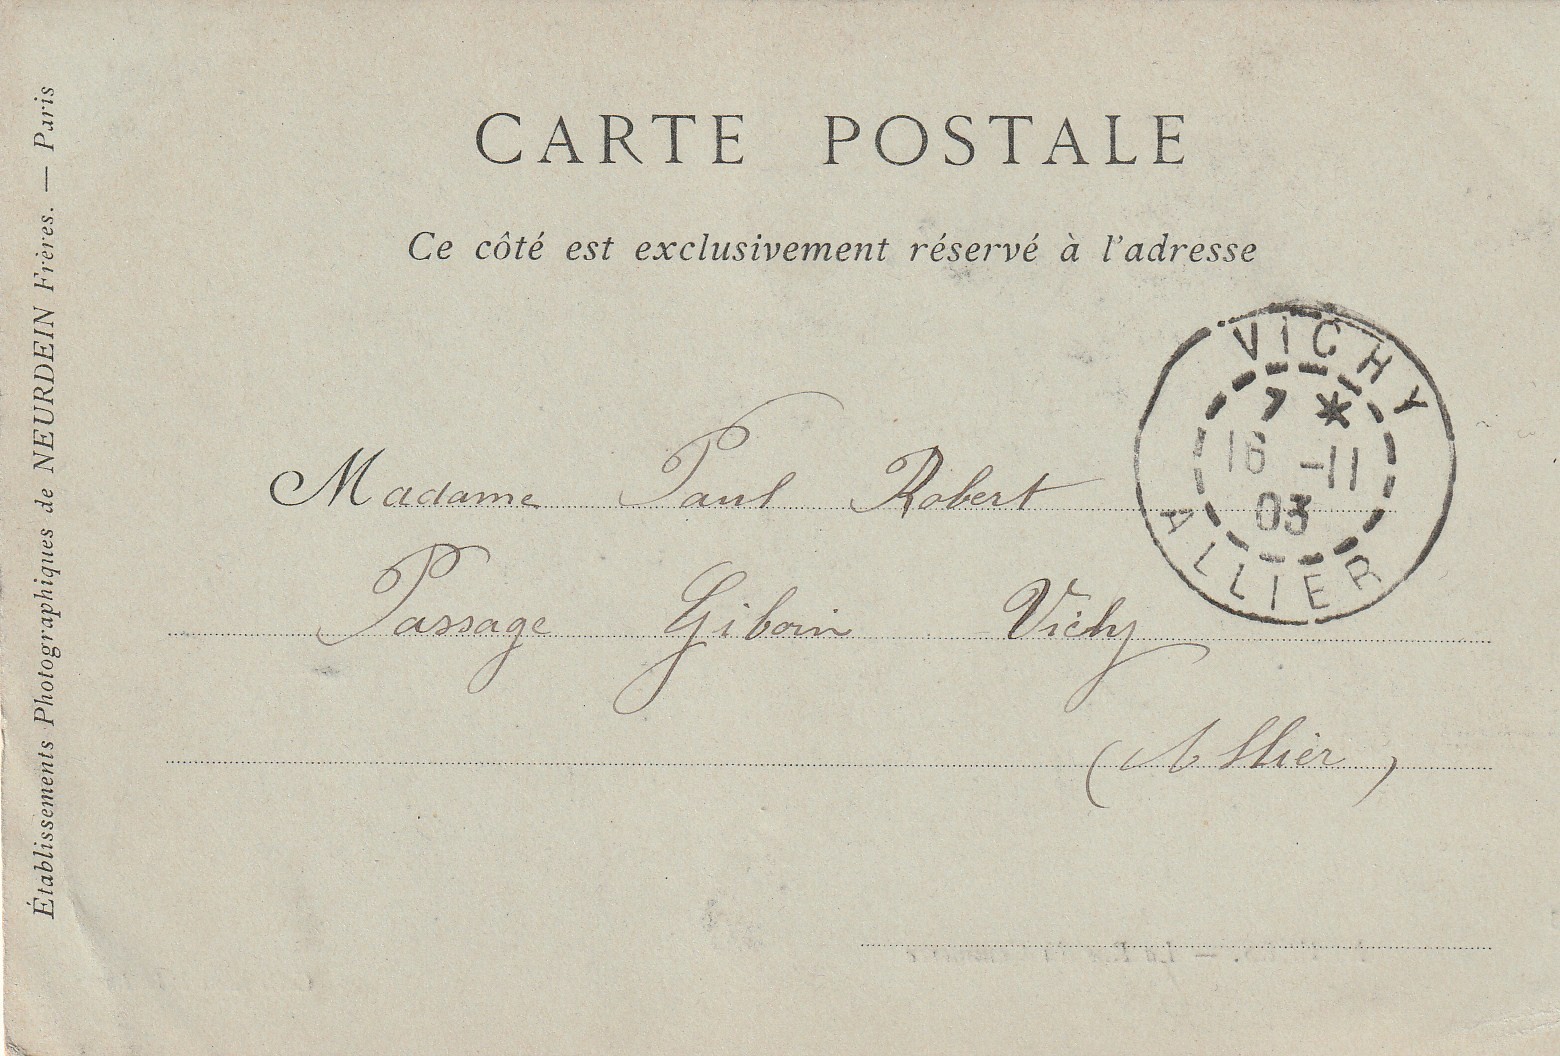 CARTE POSTALE
Ce côté est exclusivement réservé à l'adresse
Établissements Photographiques de NEURDEIN Frères. — Paris
VICHY
7 *
16 -11
03
ALLIER
Madame Paul Robert
Passage Giboin Vichy
(Allier)